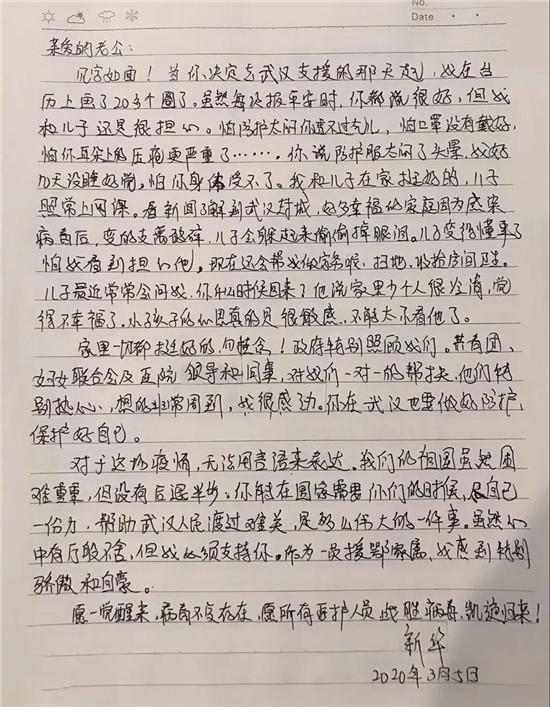 No.
Date
亲爱的老公:
见字如面!当你决定去武汉支援的那天起,我在台
历上画了20多个圈了。虽然每次报平安时,你都说很好,但我
和儿子还是很担心。怕防护太闷你透不过气儿,怕口罩没有戴好,
怕你耳朵上的压疮更严重了……。你说防护服太闷了头晕,我好
几天没睡好觉,怕你身体受不了。我和儿子在家挺好的,儿子
照常上网课。看新闻了解到武汉封城,好多幸福的家庭因为感染
病毒后,变的支离破碎,儿子会躲起来偷偷掉眼泪。儿子变得懂事了
怕我看到担心他。现在还会帮我做家务呢,扫地、收拾房间卫生。
儿子最近常常会问我,你什么时候回来?他说家里少个人很冷清,觉
得不幸福了。小孩子的心思真的是很敏感,不能太小看他了。
家里一切都挺好的,勿挂念!政府特别照顾我们。共青团、
妇女联合会及医院领导和同事,对我们一对一的帮扶,他们特
别热心,想的非常周到,我很感动。你在武汉也要做好防护,
保护好自己。
对于这场疫情,无法用言语来表达。我们的祖国虽然困
难重重,但没有后退半步。你能在国家需要你们的时候,尽自己
一份力,帮助武汉人民渡过难关,是多么伟大的一件事。虽然心
中有万般不舍,但我必须支持你。作为一员援鄂家属,我感到特别
骄傲和自豪。
愿一觉醒来,病毒不复存在,愿所有医护人员战胜病毒,凯旋归来!
新华
2020年3月5日